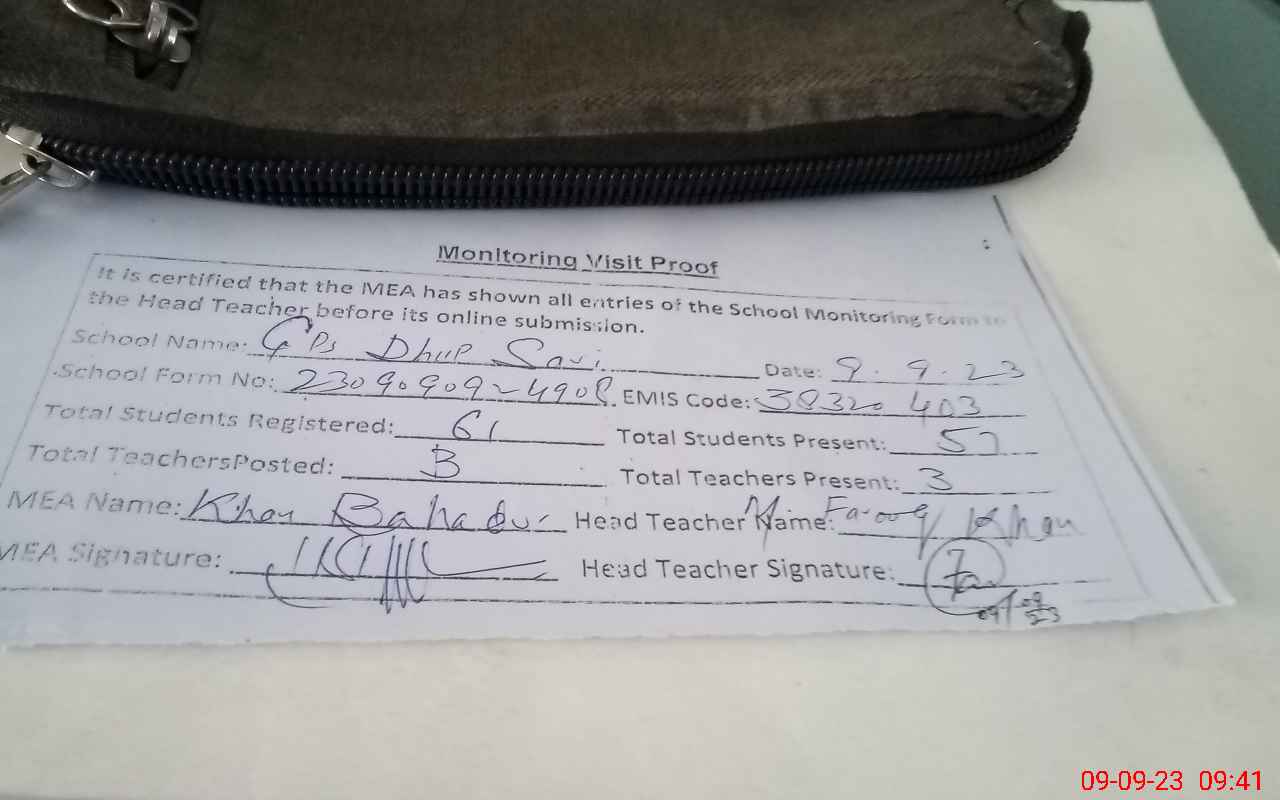 Monitoring Visit Proof
It is certified that the MEA has shown all entries of the School Monitoring Form to
the Head Teacher before its online submission.
School Name: GPS Dhup Sari Date: 9.9.23
School Form No: 2309090924908 EMIS Code: 38320403
Total Students Registered: 61 Total Students Present: 57
Total TeachersPosted: 3 Total Teachers Present: 3
MEA Name: Khan Bahadur Head Teacher Name: M Farooq Khan
MEA Signature: Head Teacher Signature:
09/09
23
09-09-23 09:41